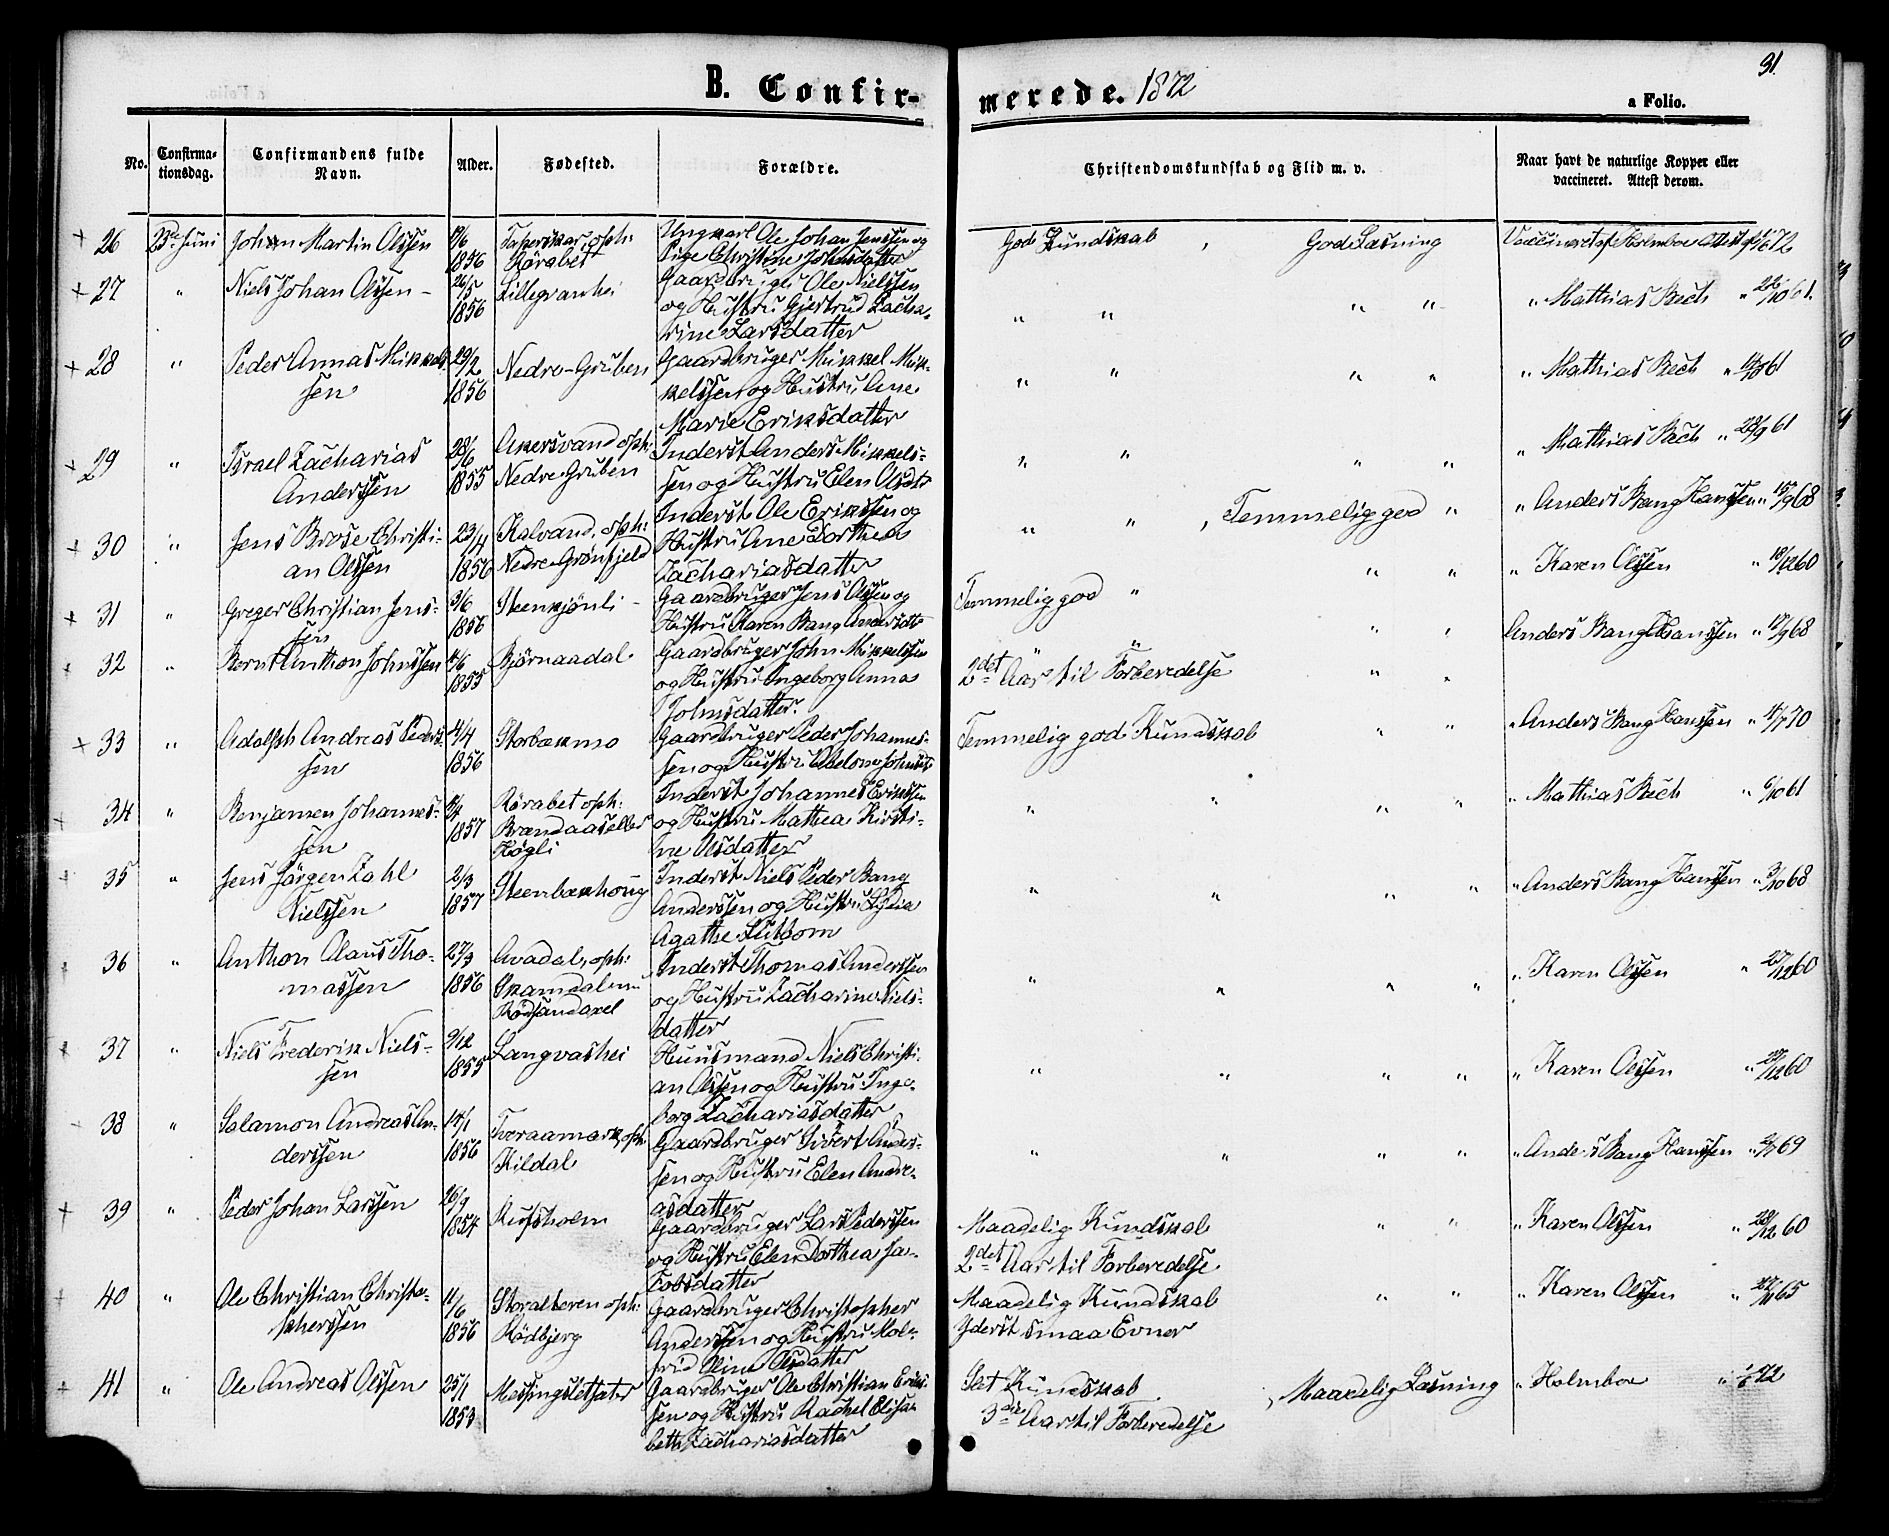 B. Confirmerede. 1872
31.
a Folio.
No.
Confirmationsdag.
Confirmandens fulde Navn.
Alder.
Fødested.
Forældre.
Christendomskundskab og Flid m. v.
Naar havt de naturlige Kopper eller
vaccineret. Attest derom.
26 23de Juni Johan Martin Olssen 1856 oph: Rörabet
Ungkarl Ole Johan Jenssen og
Pige Christine Johnsdatter
God Kundskab, God Læsning
Vaccineret af Holmboe Attest af 72
27 " Niels Johan Olssen 26/5 1856 Lillegranhei
Gaardbruger Ole Nielssen
og Hustru Gjertrud Zacha-
rine Larsdatter
" " " "
" Mathias Bech " 22/10 61.
28 " Peder Annas Mikkel-
sen 29/2 1856 Nedre-Gruben
Gaardbruger Mikkel Mik-
kelssen og Hustru Ane
Marie Eriksdatter
" " " "
" Mathias Bech " 61
29 " Israel Zacharias
Anderssen 28/6 1855 Akersvand oph:
Nedre Gruben
Inderst Anders Mikkels-
sen og Hustru Elen Olsdtr
" " " "
" Mathias Bech " 28/9 61
30 " Jens Brose Christi-
an Olssen 23/4 1856 Kalvand, oph:
Nedre Grønfjeld
Inderst Ole Erikssen og
Hustru Ane Dorthea
Zachariasdatter
" " , Temmelig god "
" Anders Bang Hanssen " 15/9 68
31 " Greger Christian Jens-
sen 3/6 1856 Steenkjönli
Gaardbruger Jens Olssen og
Hustru Karen Bang Andersdtr
Temmelig god " " "
" Karen Olssen " 18/12 60
32 " Bernt Anthon Johnssen 1855 Bjørnaadal
Gaardbruger John Mikkelssen
og Hustru Ingeborg Anna
Johnsdatter.
" "
2det Aar til Forberedelse " "
Anders Bang Hanssen " 17/9 68
33 " Adolph Andreas Peder-
sen 11/4 1856 Storbækmo
Gaardbruger Peder Johannes-
sen og Hustru Abelone
Temmelig god Kundskab " "
" Anders Bang Hanssen " 70
34 " Benjamen Johannes-
sen 1857 Rörabet oph:
Brændaas eller
Høgli
Inderst Johannes Erikssen
og Hustru Mathea Kirsti-
ne Olsdatter
" " " "
" Mathias Bech " 6/10 61
35 " Jens Jörgen Zahl
Nielssen 2/3 1857 Steenbækhoug
Inderst Niels Peder Bang
Anderssen og Hustru Lydia
Agathe
" " " "
" Anders Bang Hanssen " 3/10 68
36 " Anthon Olaus Tho-
massen 27/3 1856 Avadal, oph:
Inderst Thomas Anderssen
og Hustru Zacharine Niels-
datter
" " " "
" Karen Olssen " 27/12 60
37 " Niels Frederik Niels-
sen 9/12 1855 Langvashei
Huusmand Niels Christi-
an Olssen og Hustru Inge-
borg Zachariasdatter
" " " "
" Karen Olssen " 12 60
38 " Salamon Andreas An-
derssen 14/1 1856 Tveraamark, oph:
Kildal
Gaardbruger Sivert Anders-
sen og Hustru Elen Andre-
asdatter
" " " "
" Anders Bang Hanssen " 69
39 " Peder Johan Larssen 26/9 1854
Gaardbruger Lars Pederssen
og Hustru Elen Dorthea Ja-
kobsdatter
Maadelig Kundskab " "
2det Aar til Forberedelse
" Karen Olssen " 28/12 60
40 " Ole Christian Christo-
pherssen 11/6 1856 Storalteren oph:
Rödbjerg
Gaardbruger Christopher
Anderssen og Hustru
Oline Olsdatter
Maadelig Kundskab " "
Yderst smaa Evner
" Karen Olssen " 65
41 " Ole Andreas Olssen 25/1 1853 Messingsletsæter
Gaardbruger Ole Christian Eriks-
sen og Hustru Rachel Elisa-
beth Zachariasdatter
Slet Kundskab, Maadelig Læsning
3die Aar til Forberedelse
" Holmboe " 72